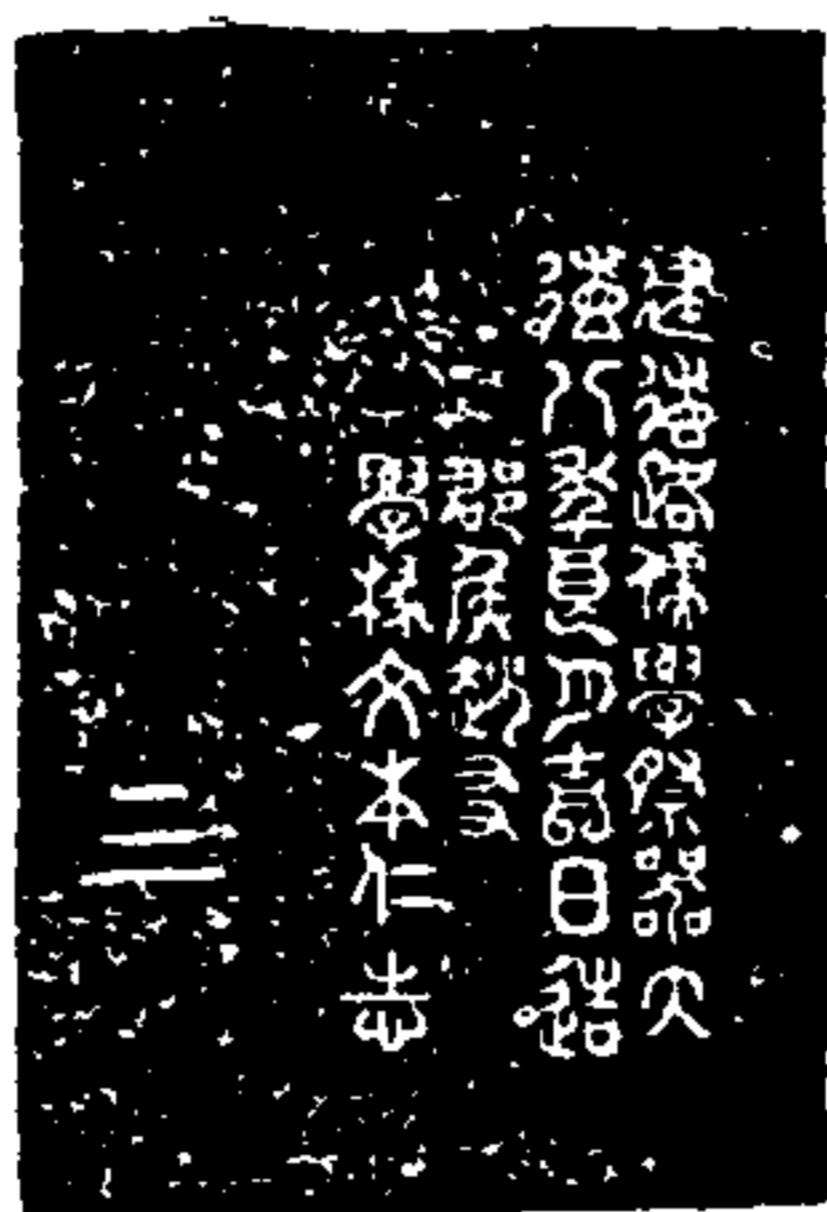 建德路儒學祭器大
德八年夏月吉日造
郡侯
學掾文本仁志
三